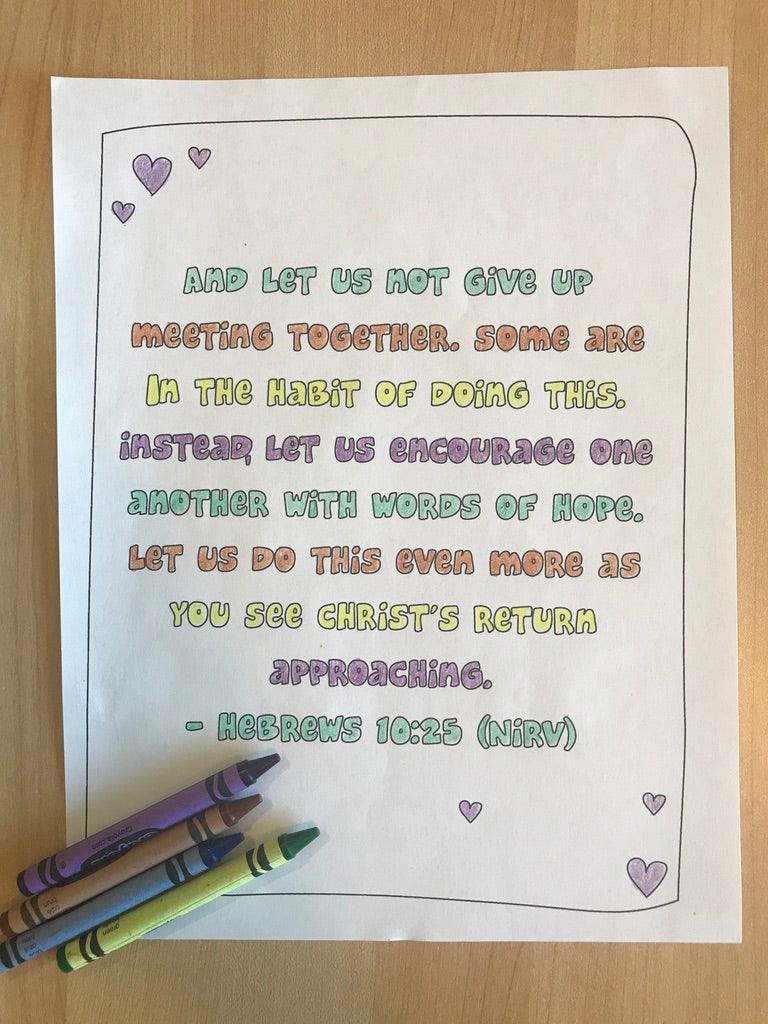 AND LET US NOT GIVE UP
MEETING TOGETHER. SOME ARE
IN THE HABIT OF DOING THIS.
INSTEAD, LET US ENCOURAGE ONE
ANOTHER WITH WORDS OF HOPE.
LET US DO THIS EVEN MORE AS
YOU SEE CHRIST'S RETURN
APPROACHING.
- HEBREWS 10:25 (NIRV)
Crayola.com
green